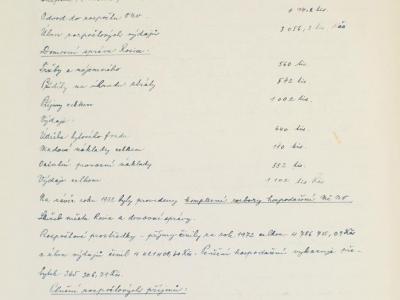 Odvod do rozpočtu ONV
Úhrn rozpočtových výdajů 3 056,2 tis. Kčs
Domovní správa Rosice:
Tržby z nájemného 560 tis.
Příděly na úhradu ztráty 542 tis.
Příjmy celkem 1 002 tis.
Výdaje:
Údržba bytového fondu 440 tis.
Mzdové náklady celkem 110 tis.
Ostatní provozní náklady 552 tis.
Výdaje celkem 1 102 tis. Kčs
Na závěr roku 1972 byly provedeny komplexní rozbory hospodaření Mě NV
města Rosice a domovní správy.
Rozpočtové prostředky - příjmy činily za rok 1972 celkem 4 786 745,09 Kčs
a úhrn výdajů činil Kčs. Peněžní hospodaření vykazuje pře-
bytek 365 306,71 Kčs.
Plnění rozpočtových příjmů: